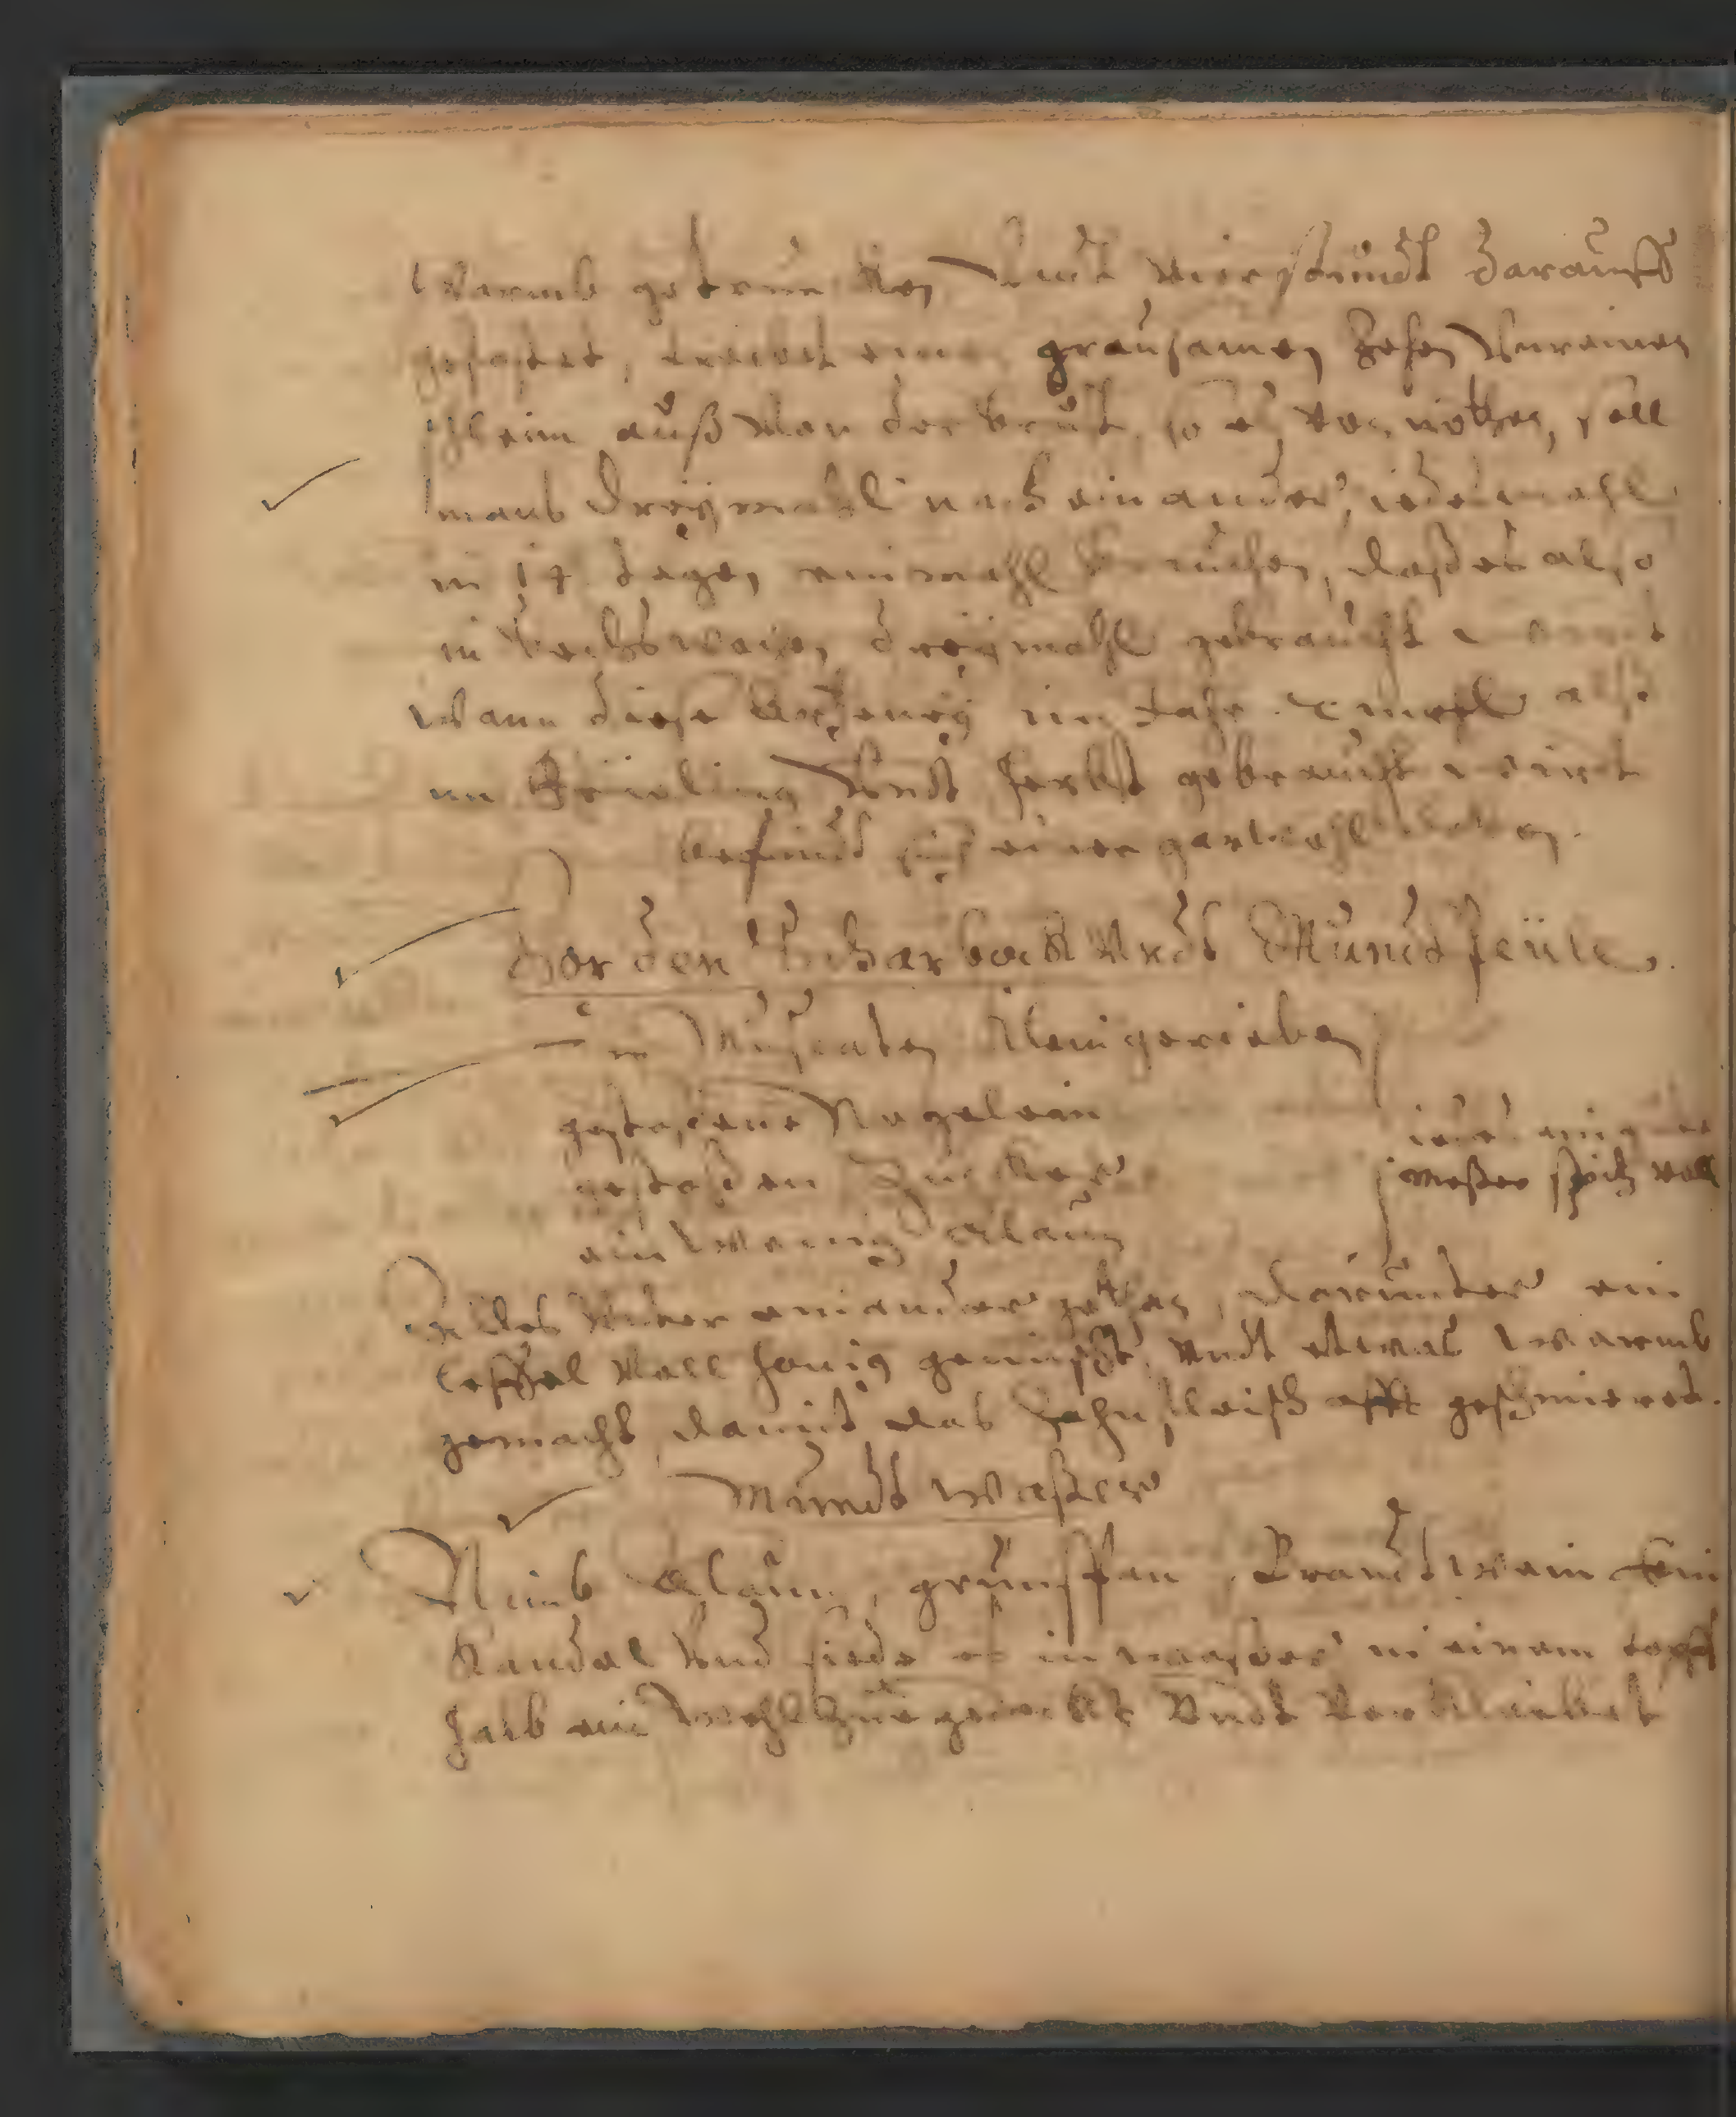 Warmb getruncken Undt vier stundt darauff
gefastet, treibet einen grausamen zehen Unreinen
schleim auß Von der brust, so es von nöthen, soll
mans dreÿmahl nach einander, iedesmahl
in 14 tagen einmahl brauchen, daß es also
in sechs wochen dreÿmahl gebraucht wirdt
Wann diese Artzeneÿ im Jahr 2 mahl alß
im Früeling Undt herbst gebraucht wirdt
befindt sich einer gar wohl
Vor den Scharbock Undt Mundtfeüle.
Muscaten klein gerieben
gestossene Negelein
gestoßen Zucker
ein wenig Alaun
iedes einer
Meßer spitz voll
Alles Unter einander gethan, darunter ein
Leffel Voll honig gemischt, Undt etwas warmb
gemacht, damit das Zahnfleisch offt geschmieret.
Mundt Waßer
Nimb Alaun, grünspan, Brandtwein Ein
Kandel Und siede es in waßer in einem topff
halb ein wohl zue gedeckt Undt verkleibet